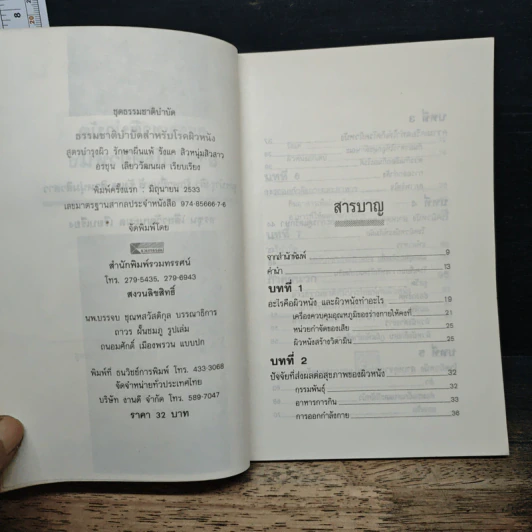 ชุดธรรมชาติบำบัด
ธรรมชาติบำบัดสำหรับโรคผิวหนัง
สูตรบำรุงผิว รักษาผื่นแพ้ รังแค สิวหนุ่มสิวสาว
อรชุน เลียววัฒนผล เรียบเรียง
พิมพ์ครั้งแรก : มิถุนายน 2533
เลขมาตรฐานสากลประจำหนังสือ 974-85666-7-6
จัดพิมพ์โดย
สำนักพิมพ์รวมทรรศน์
โทร. 279-5435, 279-6943
สงวนลิขสิทธิ์
นพ.บรรจบ ชุณหสวัสดิกุล บรรณาธิการ
ถาวร ผื้นชมภู รูปเล่ม
ถนอมศักดิ์ เมืองพรวน แบบปก
พิมพ์ที่ ธนวิชย์การพิมพ์ โทร. 433-3068
จัดจำหน่ายทั่วประเทศไทย
บริษัท งานดี จำกัด โทร. 589-7047
ราคา 32 บาท
สารบาญ
จากสำนักพิมพ์ 9
คำนำ 13
บทที่ 1
อะไรคือผิวหนัง และผิวหนังทำอะไร 19
เครื่องควบคุมอุณหภูมิของร่างกายให้คงที่ 21
หน่วยกำจัดของเสีย 25
ผิวหนังสร้างวิตามิน 25
บทที่ 2
ปัจจัยที่ส่งผลต่อสุขภาพของผิวหนัง 32
กรรมพันธุ์ 32
อาหารการกิน 33
การออกกำลังกาย 36